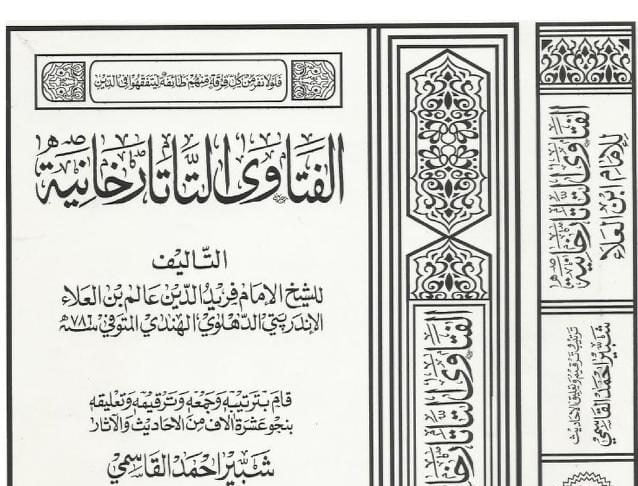 فلولا نفر من كل فرقة منهم طائفة ليتفقهوا في الدين
الفتاوى التاتارخانية
التأليف
للشيخ الإمام فريد الدين عالم بن العلاء
الإندربتي الدهلوي الهندي المتوفى سنة ٧٨٦ھ
قام بترتيبه وجمعه وترقيمه وتعليقه
بنحو عشرة آلاف من الأحاديث والآثار
شبير احمد القاسمي
الفتاوى التاتارخانية
الفتاوى التاتارخانية
للإمام ابن العلاء
ترتيب ترقيم وتعليق الاحاديث
شبير احمد القاسمي